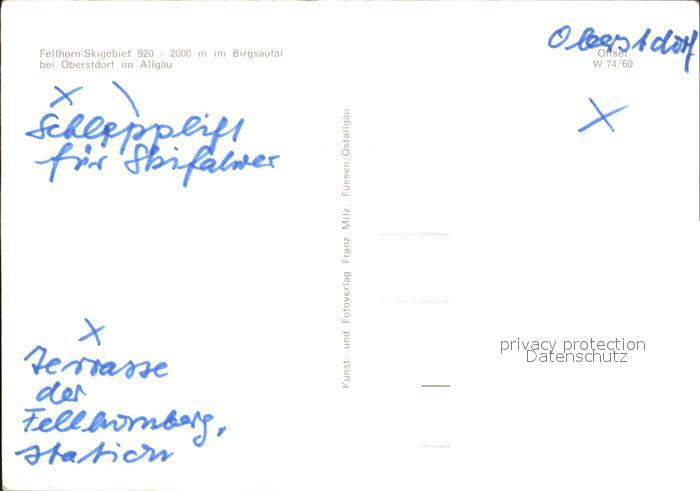 Fellhorn-Skigebiet 920 - 2000 m im Birgsautal
bei Oberstdorf im Allgäu
Schlepplift
für Skifahrer
Terrasse
der
Fellhornberg,
station
Kunst- und Fotoverlag Franz Milz, Füssen/Ostallgäu
Oberstdorf
Offset
W 74/60
privacy protection
Datenschutz